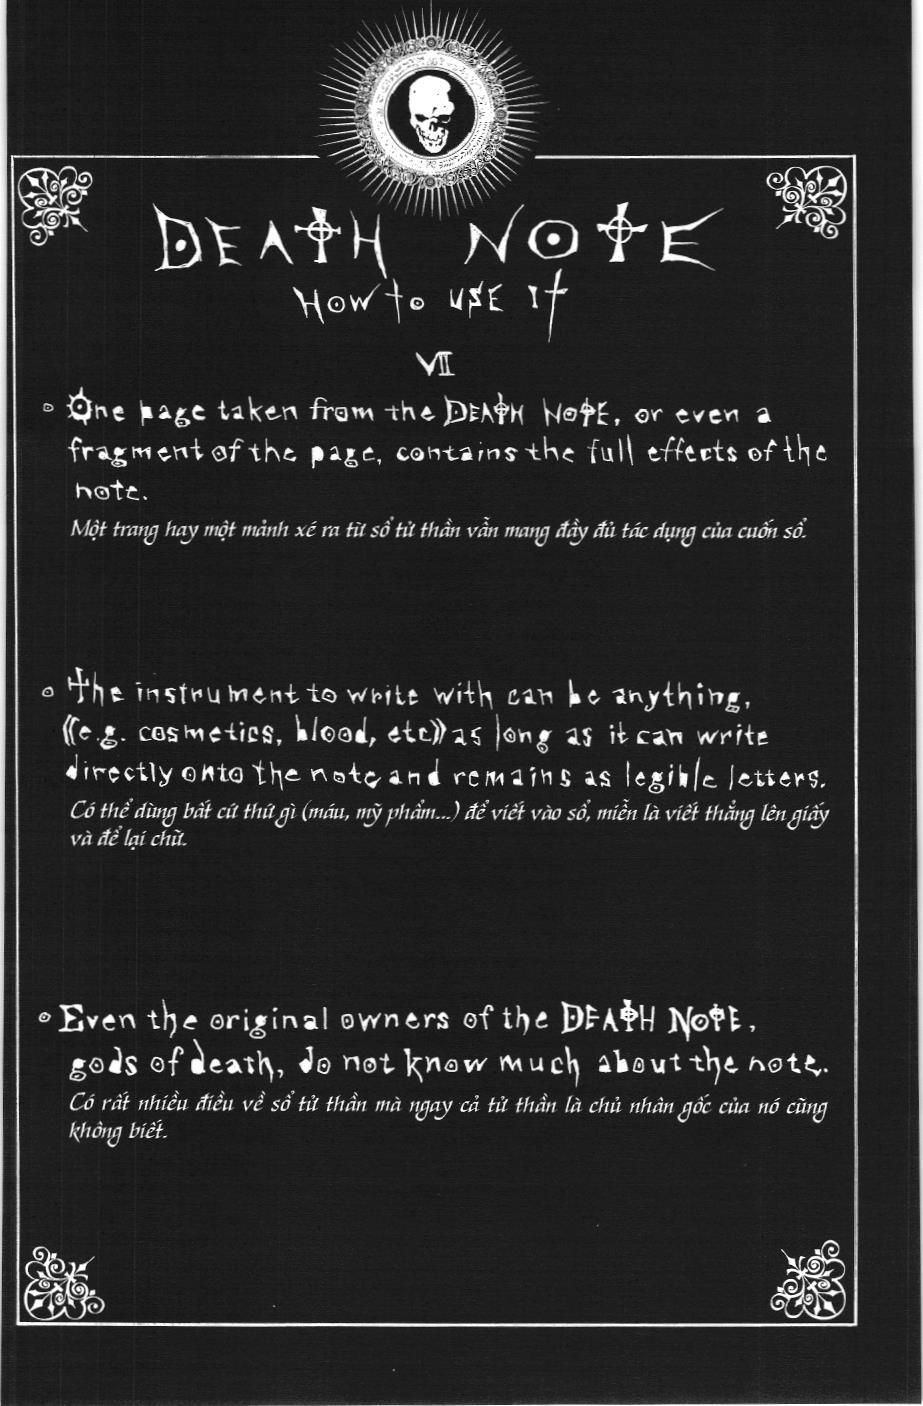 DEATH NOTE
HOW to USE It
VII
One page taken from the DEATH NOTE, or even a
fragment of the page, contains the full effects of the
note.
Một trang hay một mảnh xé ra từ sổ tử thần vẫn mang đầy đủ tác dụng của cuốn sổ.
The instrument to write with can be anything,
((e.g. cosmetics, blood, etc)) as long as it can write
directly onto the note and remains as legible letters.
Có thể dùng bất cứ thứ gì (máu, mỹ phẩm...) để viết vào sổ, miễn là viết thẳng lên giấy
và để lại chữ.
Even the original owners of the DEATH NOTE,
gods of death, do not know much about the note.
Có rất nhiều điều về sổ tử thần mà ngay cả tử thần là chủ nhân gốc của nó cũng
không biết.